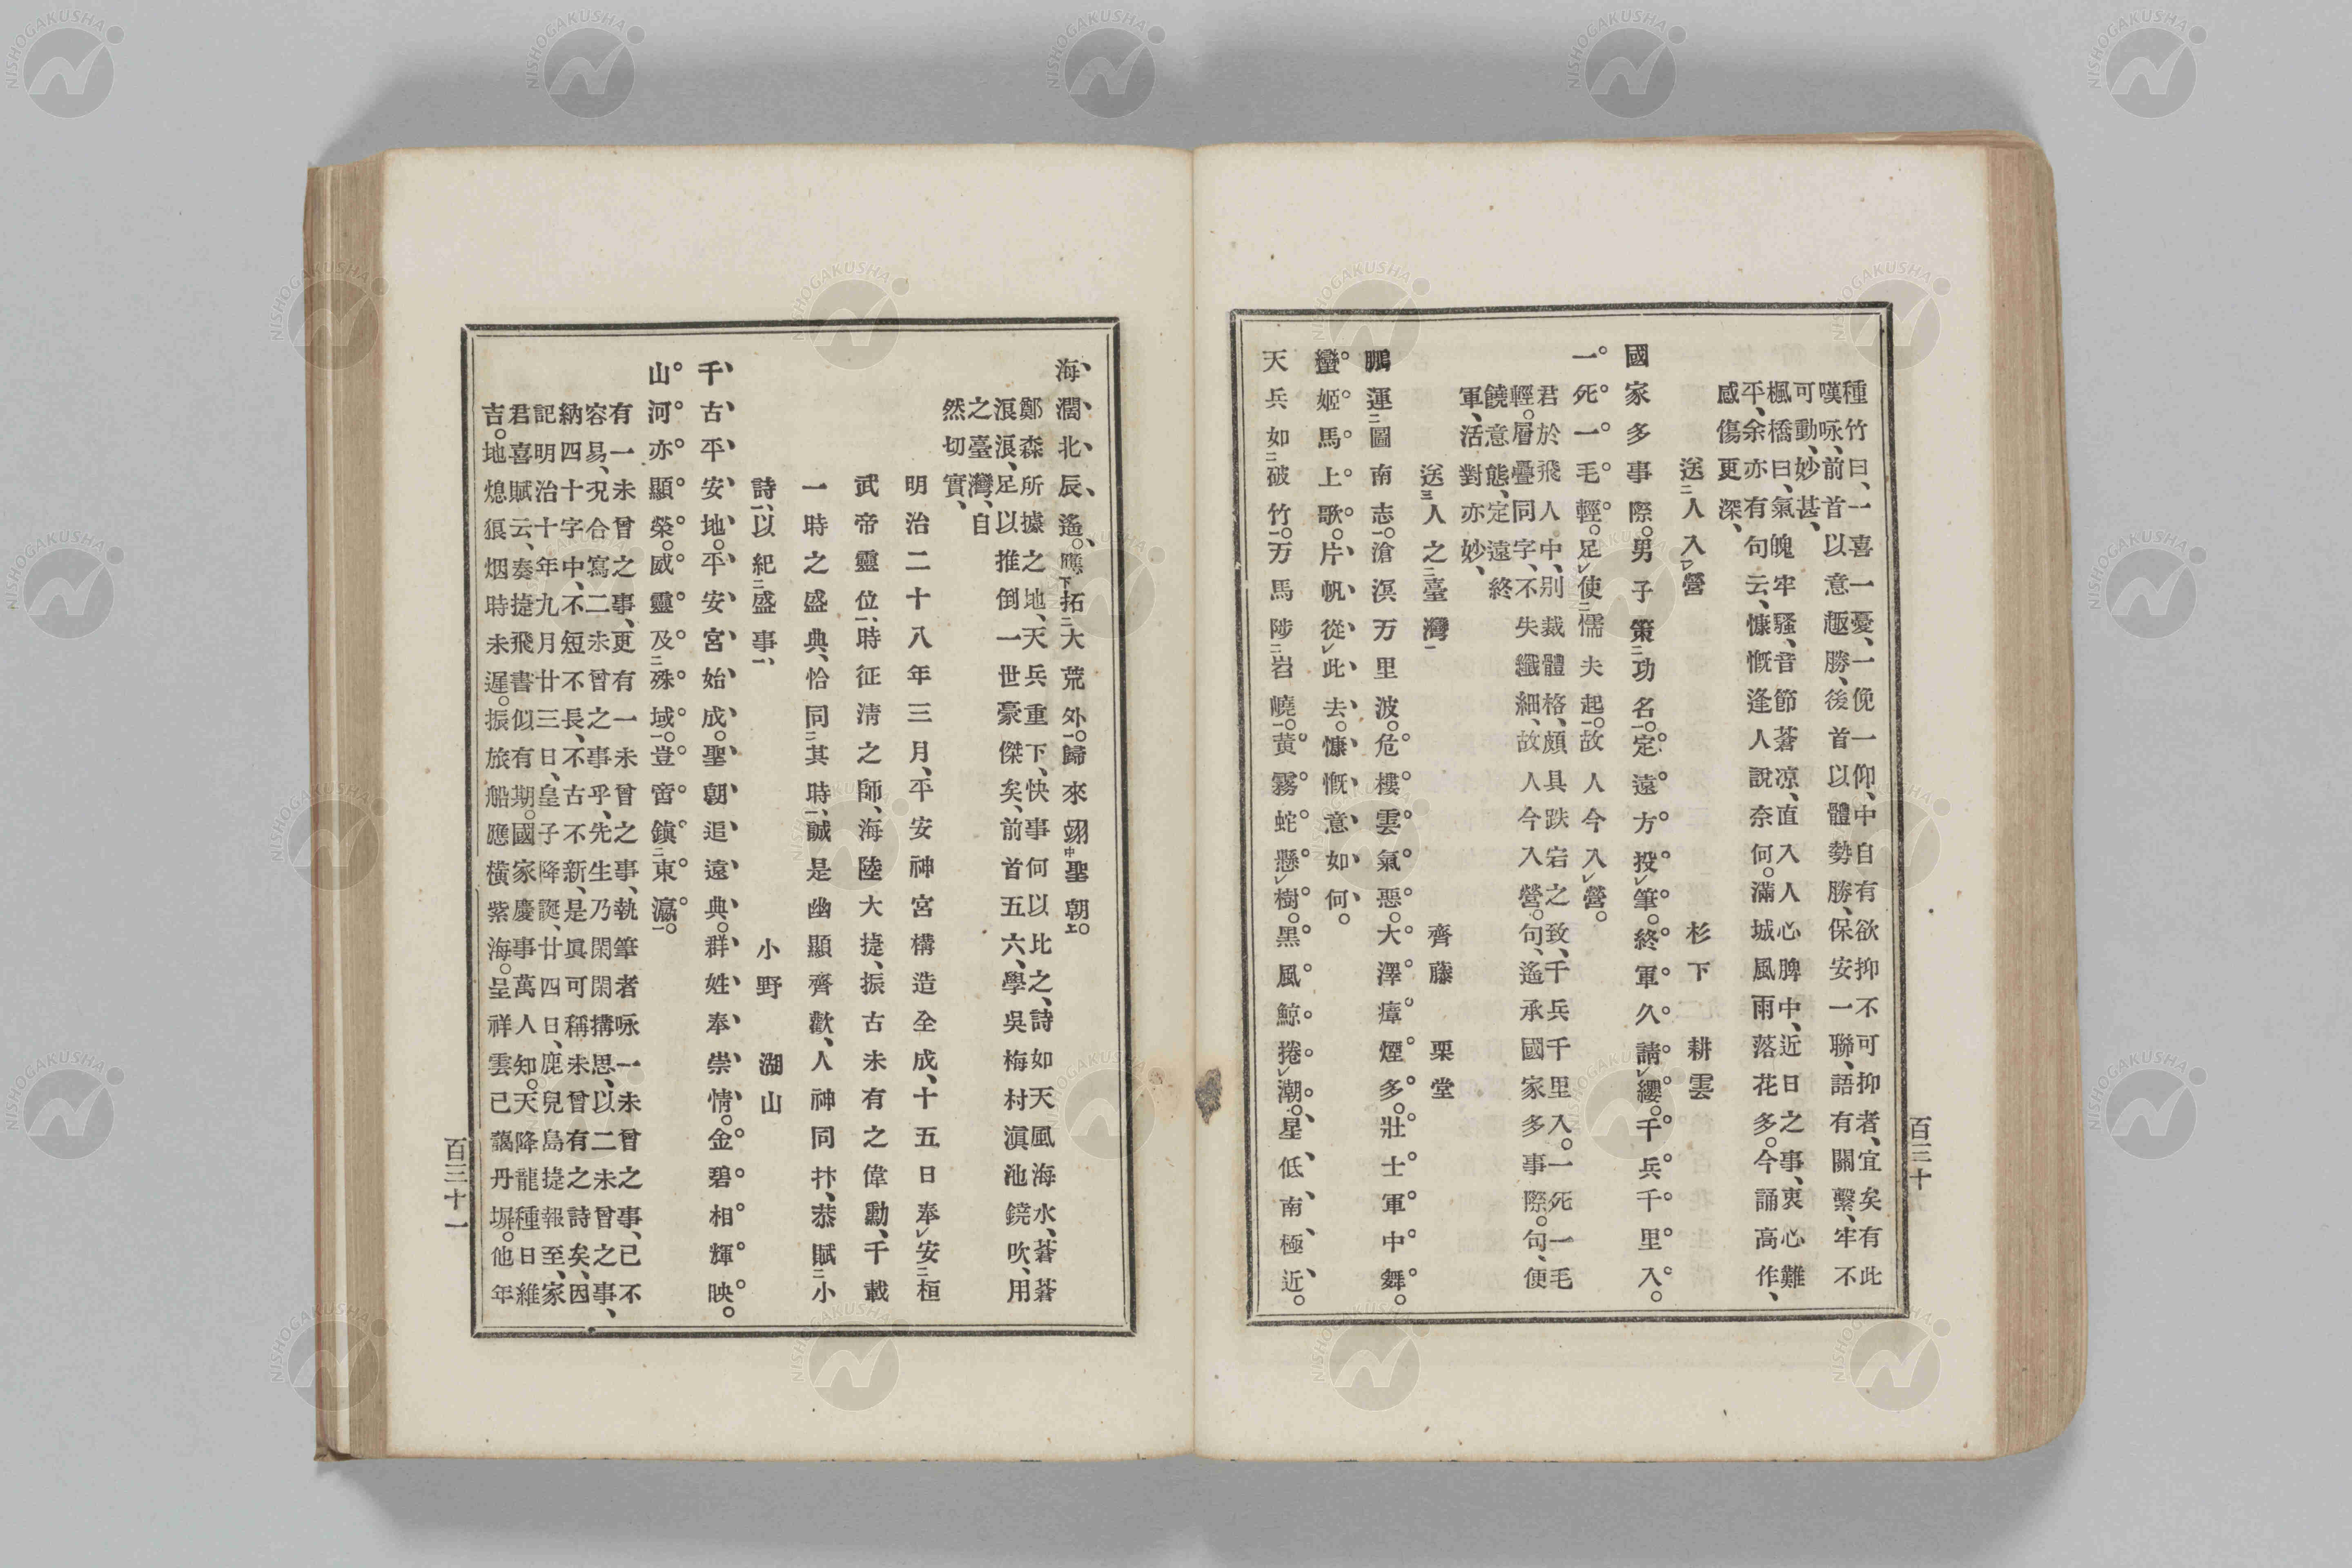 種竹曰、一喜一憂、一俛一仰、中自有欲抑不可抑者、宜矣有此
嘆咏、前首以意趣勝、後首以體勢勝、保安一聯、語有關繫、牢不
可動、妙甚、
楓橋曰、氣魄牢騷、音節蒼凉、直入人心脾中、近日之事、衷心難
平、余亦有句云、慷慨逢人說奈何。滿城風雨落花多。今誦高作、
感傷更深、
送二人入一レ營 杉下耕雲
國家多事際。男子策二功名一。定遠方投レ筆。終軍久請レ纓。千兵千里入。
一死一毛輕。足レ使二懦夫起一。故人今入レ營。
君於飛人中、別裁體格、頗具跌宕之致、千兵千里入。一死一毛
輕。層疊同字、不失纖細、故人今入營。句、遙承國家多事際。句、便
饒意態、定遠終
軍、活對亦妙、
送三人之二臺灣一 齊藤栗堂
鵬運二圖南志一。滄溟万里波。危樓雲氣惡。大澤瘴煙多。壯士軍中舞。
蠻姬馬上歌。片帆從レ此去。慷慨意如何。
天兵如二破竹一。万馬陟二岩嶢一。黃霧蛇懸レ樹。黑風鯨捲レ潮。星低南極近。
百三十
海濶北辰遙。應下拓二大荒外一。歸來翊中聖朝上。
鄭森所據之地、天兵重下、快事何以比之、詩如天風海水、蒼蒼
浪浪、足以推倒一世豪傑矣、前首五六、學吳梅村滇池鐃吹、用
之臺灣、自
然切實、
明治二十八年三月、平安神宮構造全成、十五日奉レ安二桓
武帝靈位一、時征淸之師、海陸大捷、振古未有之偉勳、千載
一時之盛典、恰同二其時一、誠是幽顯齊歡、人神同抃、恭賦二小
詩一、以紀二盛事一、 小野湖山
千古平安地。平安宮始成。聖朝追遠典。群姓奉崇情。金碧相輝映。
山河亦顯榮。威靈及二殊域一。豈啻鎭二東瀛一。
有一未曾之事、更有一未曾之事、執筆者咏一未曾之事、已不
容易、况合寫二未曾之事乎、先生乃閑閑搆思、以二未曾之事、
納四十字中、不短不長、不古不新、是眞可稱未曾有之詩矣、因
記明治十年九月廿三日、皇子降誕、廿四日、鹿兒島捷報至、家
君喜賦云、奏捷飛書似有期。國家慶事萬人知。天降龍種日維
吉。地熄狼烟時未遲。振旅船應橫紫海。呈祥雲已藹丹墀。他年
百三十一